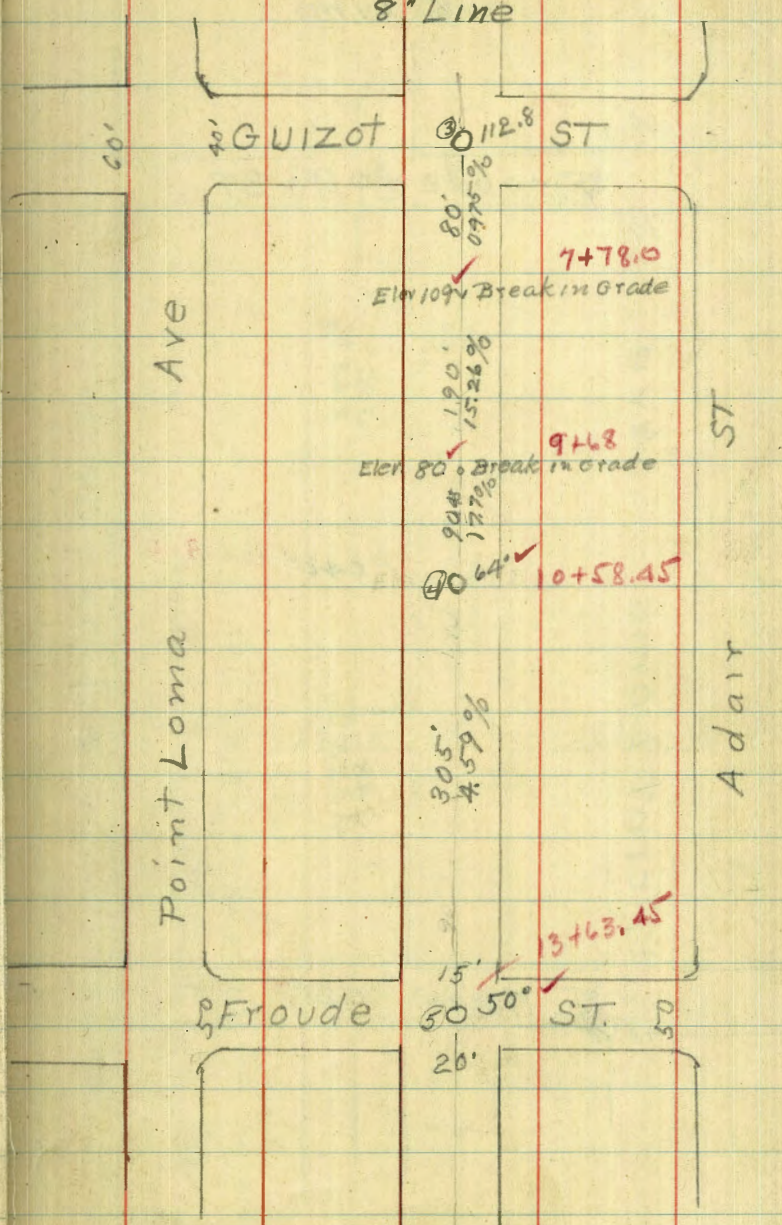 8" Line
60'
40' GUIZOT ③ 112.8 ST
80'
7+78.0
Elev 109 Break in Grade
Ave
190'
15.26%
ST
9+68
Elev 80 Break in Grade
90.45
17.70%
④ 64.0
10+58.45
Point Loma
305'
4.59%
Adair
13+63.45
15'
50 Froude ⑤ 50° ST. 50
20'